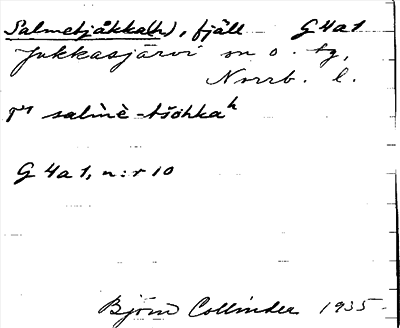 Salmetjåkka(h), fjäll G4a1
Jukkasjärvi sn o. tg,
Norrb. l.
salmè-tšohkaʰ
G 4a1, n:r 10
Björn Collinder 1935